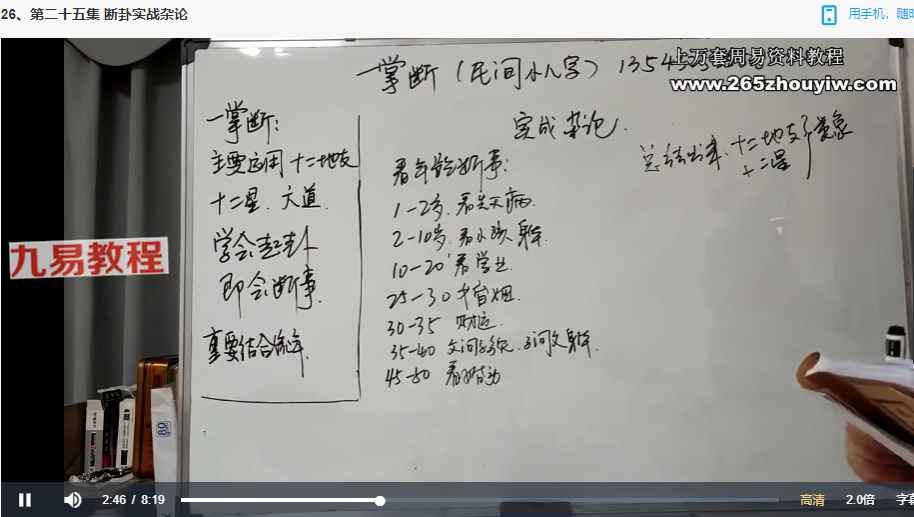 26、第二十五集 断卦实战杂论
用手机，随时
上万套周易资料教程
www.265zhouyiw.com
一掌断（民间小八字）1354
一掌断：
主要应用 十二地支
十二星、六道
学会起卦
即会断事
重要结合流年
九易教程
杂论
看年龄断事：
1-2岁、看先天病
2-10岁、看小孩身体
10-20 看学业
25-30 婚姻
30-35 财运
35-40
45-50
十二地支
十二星
类象
2:46 / 8:19
高清
2.0倍
字幕